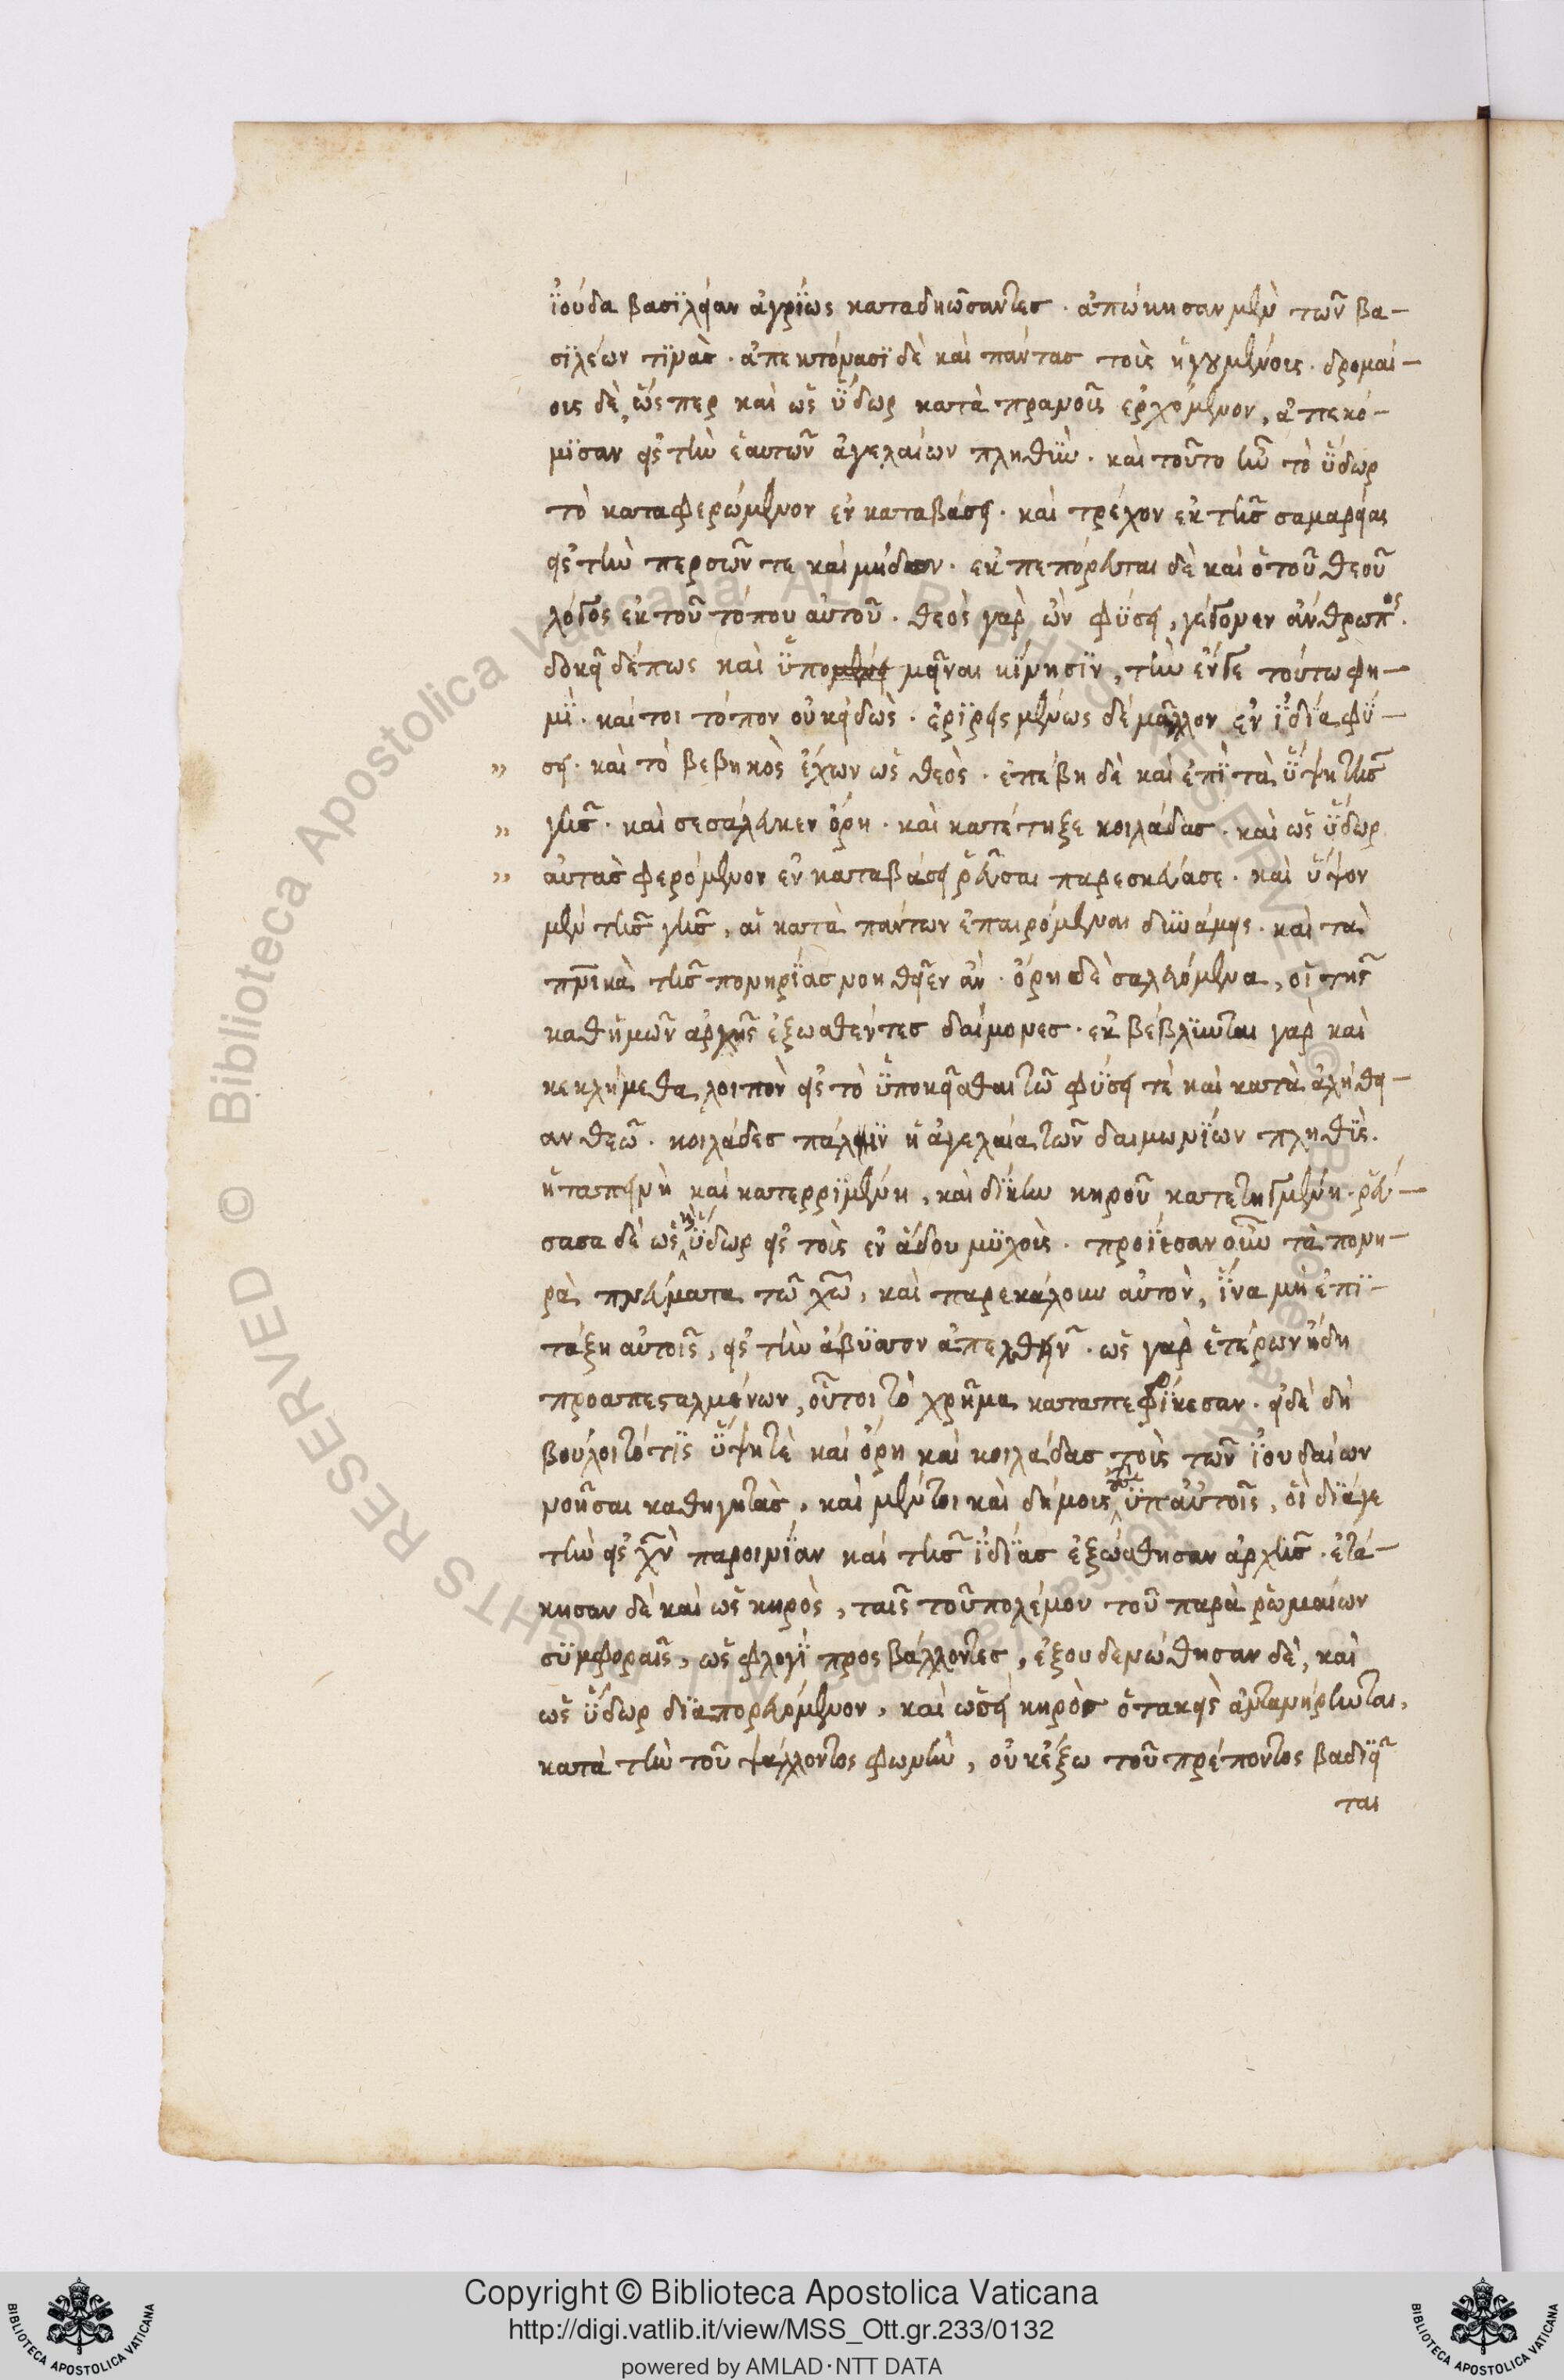 ϊούδα βασϊλείαν ἀγρϊως καταδηώσαντες · ἀπώκησαν μὲν τῶν βα-
σϊλέων τϊνὰς · ἀπεκτόνασϊ δὲ καὶ πάντας τοὺς ἡγουμένους · δρομαί-
οις δὲ, ὥσπερ καὶ ὡς ὕδωρ κατὰ πρανοῦς ἐρχόμενον, ἀπεκό-
μϊσαν εἰς τὴν ἑαυτῶν ἀγελαίων πληθὺν · καὶ τοῦτο ἦν τὸ ὕδωρ
τὸ καταφερώμενον ἐν καταβάσει · καὶ τρέχον ἐκ τῆς σαμαρείας
εἰς τὴν περσῶν τε καὶ μήδων · ἐκπεπόρευται δὲ καὶ ὁ τοῦ θεοῦ
λόγος ἐκ τοῦ τόπου αὐτοῦ · θεὸς γὰρ ὢν φύσει, γέγονεν ἄνθρωπος ·
δοκεῖ δέ πως καὶ ὑπομεῖναι κϊνησϊν, τὴν ἔν γε τούτω φη-
μϊ · καί τοι τόπον οὐκ εἰδὼς · ἐρϊρεισμένως δὲ μᾶλλον ἐν ϊδϊα φύ-
σει · καὶ τὸ βεβηκὸς ἔχων ὡς θεὸς · ἐπέβη δὲ καὶ ἐπϊ τὰ ὕψη τῆς
γῆς · καὶ σεσάλευκεν ὄρη · καὶ κατέτηξε κοιλάδας · καὶ ὡς ὕδωρ
αὐτὰς φερόμενον ἐν καταβάσει ῥεῦσαι παρεσκεύασε · καὶ ὕψον
μὲν τῆς γῆς, αἱ κατὰ πάντων ἐπαιρόμεναι δυνάμεις · καὶ τὰ
πνικὰ τῆς πονηρϊας νοηθεῖεν ἂν · ὄρη δὲ σαλευόμενα, οἱ τῆς
καθ ἡμῶν ἀρχῆς ἐξωσθέντες δαίμονες · ἐκβέβληνται γὰρ καὶ
κεκλήμεθα λοιπὸν εἰς τὸ ὑποκεῖσθαι τῶ φύσει τὲ καὶ κατὰ ἀλήθει-
αν θεῶ · κοιλάδες πάλϊν ἡ ἀγελαία τῶν δαιμωνϊων πληθϊς ·
ἡ ταπεινὴ καὶ κατερρϊμένη, καὶ δϊκην κηροῦ κατετηγμένη · ῥεύ-
σασα δὲ ὡς ὕδωρ εἰς τοὺς ἐν ἅδου μϋχοὺς · προϊεσαν οὖν τὰ πονη-
ρὰ πνεύματα τῶ χῶ, καὶ παρεκάλουν αὐτὸν, ϊνα μὴ ἐπϊ-
τάξη αὐτοῖς, εἰς τὴν ἄβϋσσον ἀπελθεῖν · ὡς γὰρ ἑτέρων ἤδη
προαπεσταλμένων, οὗτοι τὸ χρῆμα καταπεφρϊκεσαν · εἰ δὲ δὴ
βούλοιτό τϊς ὕψη τὲ καὶ ὄρη καὶ κοιλάδας τοὺς τῶν ϊουδαίων
νοῆσαι καθηγητὰς, καὶ μέντοι καὶ δήμους ὑπ αὐτοῖς, οἳ διά γε
τὴν εἰς χν παροινϊαν καὶ τῆς ϊδϊας ἐξώσθησαν ἀρχῆς · ἐτά-
κησαν δὲ καὶ ὡς κηρὸς, ταῖς τοῦ πολέμου τοῦ παρὰ ῥωμαίων
σϋμφοραῖς, ὡς φλογϊ προσβάλλοντες, ἐξουδενώθησαν δὲ, καὶ
ὡς ὕδωρ διαπορευόμενον, καὶ ὡσεὶ κηρὸς ὁ τακεὶς ἀντανήρηνται,
κατὰ τὴν τοῦ ψάλλοντος φωνὴν, οὐκ ἔξω τοῦ πρέποντος βαδιεῖ
ται
Copyright © Biblioteca Apostolica Vaticana
http://digi.vatlib.it/view/MSS_Ott.gr.233/0132
powered by AMLAD·NTT DATA